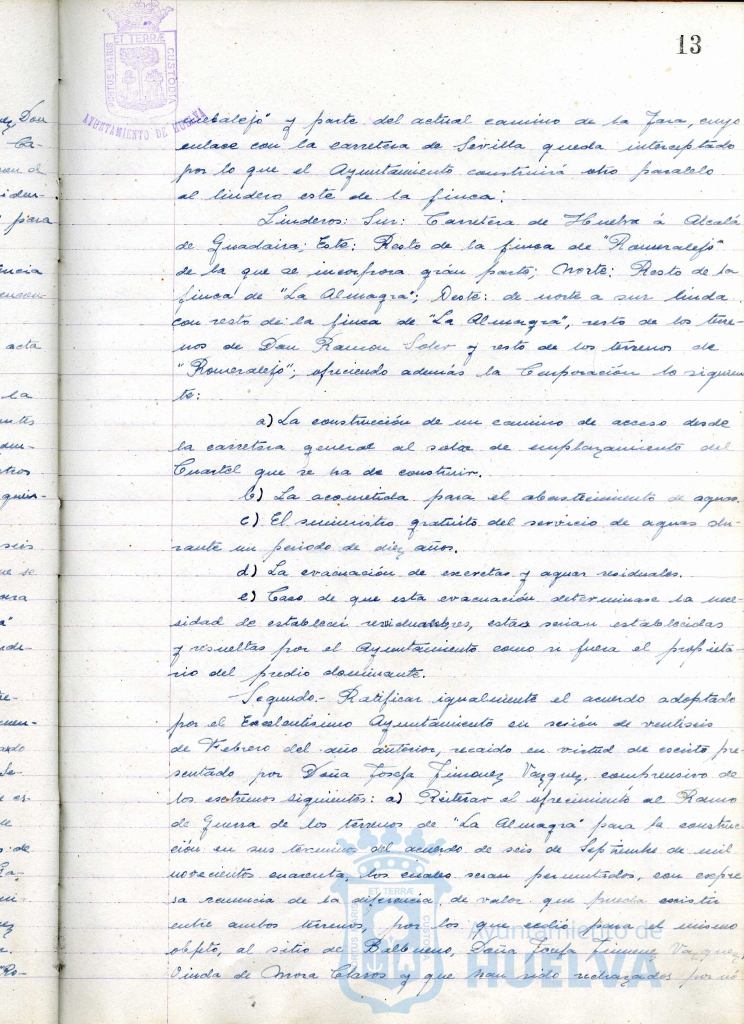 13
PORTUS MARIS ET TERRÆ CUSTODIA
AYUNTAMIENTO DE HUELVA
y parte del actual camino de la Jara, cuyo
enlace con la carretera de Sevilla queda interceptado
por lo que el Ayuntamiento construirá otro paralelo
al lindero este de la finca.
Linderos: Sur: Carretera de Huelva á Alcalá
de Guadaira; Este: Resto de la finca de "Romeralejo"
de la que se incorpora gran parte; Norte: Resto de la
finca de "La Almagra"; Oeste: de norte a sur linda
con resto de la finca de "La Almagra", resto de los terre-
nos de Don Ramon Soler y resto de los terrenos de
"Romeralejo"; ofreciendo además la Corporación lo siguien
te:
a) La construcción de un camino de acceso desde
la carretera general al solar de emplazamiento del
Cuartel que se ha de construir.
b) La acometida para el abastecimiento de aguas.
c) El suministro gratuito del servicio de aguas du-
rante un periodo de diez años.
d) La evacuación de excretas y aguas residuales.
e) Caso de que esta evacuación determinase la nece-
sidad de establecer servidumbres, estas serian establecidas
y resueltas por el Ayuntamiento como si fuera el propieta-
rio del predio dominante.
Segundo.- Ratificar igualmente el acuerdo adoptado
por el Excelentísimo Ayuntamiento en sesión de veintiseis
de Febrero del año anterior, recaido en virtud de escrito pre-
sentado por Doña Josefa Jimenez Vazquez, comprensivo de
los extremos siguientes: a) Reiterar el ofrecimiento al Ramo
de Guerra de los terrenos de "La Almagra" para la construc-
ción en sus términos del acuerdo de seis de Septiembre de mil
novecientos cuarenta, los cuales seran permutados, con expre
sa renuncia de la diferencia de valor que pueda existir
entre ambos terrenos, por los que cedió para el mismo
objeto, al sitio de Balbueno, Doña Josefa Jimenez Vazquez,
Viuda de Mora Claros y que han sido rechazados por no
Ayuntamiento de
HUELVA